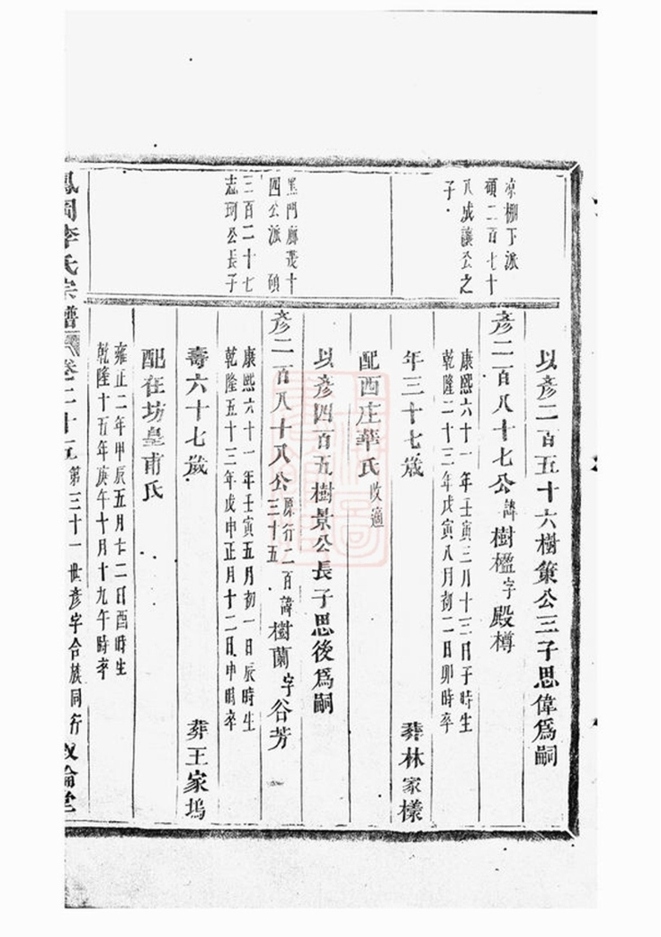 以彥二百五十六樹策公三子思偉爲嗣
京棚下派
碩二百七十
八成讓公之
子
彥二百八十七公諱樹楹字殿樽
康熙六十一年壬寅三月十三日子時生
乾隆二十三年戊寅八月初二日卯時卒
年三十七歲 葬林家樣
配西庄華氏改適
以彥四百五樹景公長子思後爲嗣
黑門廳茂十
四公派碩
三百二十七
志珂公長子
彥二百八十八公原行二百三十五諱樹蘭字谷芳
康熙六十一年壬寅五月初一日辰時生
乾隆五十三年戊申正月十二日申時卒
壽六十七歲 葬王家塢
配在坊皇甫氏
雍正二年甲辰五月廿二日酉時生
乾隆十五年庚午十月十九午時卒
鳳岡李氏宗譜 卷二十五 第三十一世彥字合族同行 敘倫堂